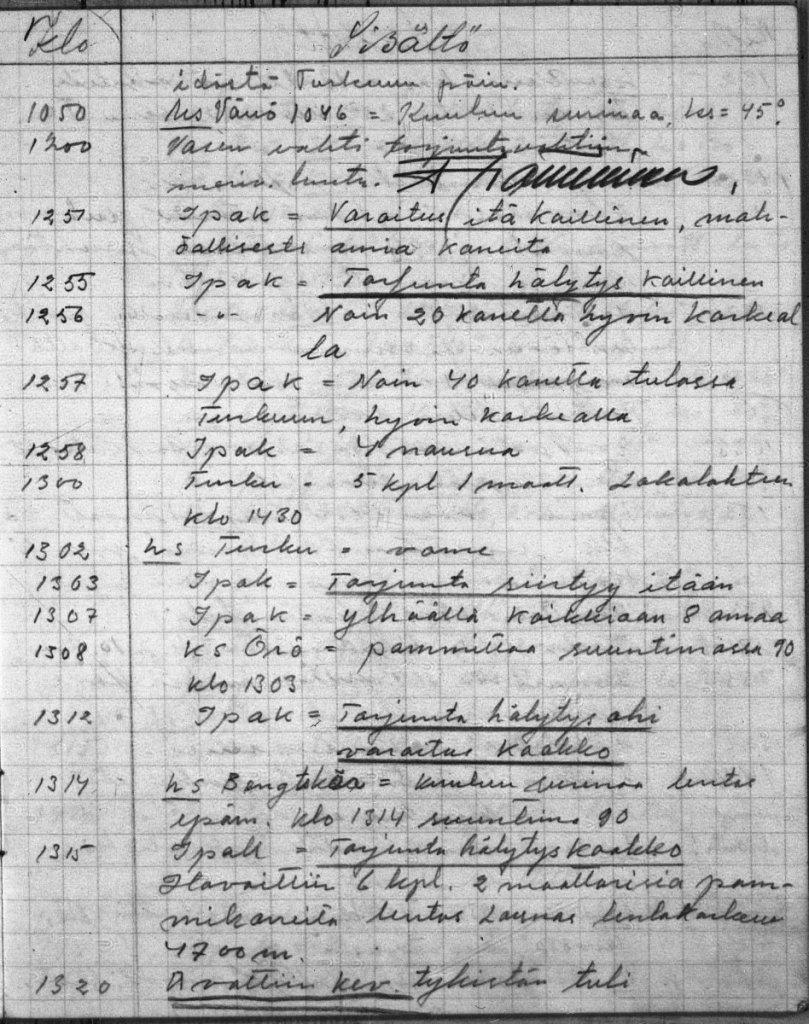 Klo Sisältö
idästä Turkuun päin.
1050 hs Vänö 1046 = Kuuluu surinaa, ks = 45°
1200 Vasen vahti
meriv. lento.
1251 Ipak = Varoitus itä kaillinen, mah-
döllisesti omia koneita
1255 Ipak = Torjunta hälytys kaillinen
1256 -"- Noin 20 konetta hyvin korkeal
la
1257 Ipak = Noin 40 konetta tulossa
Turkuun, hyvin korkealla
1258 Ipak = 4 nousua
1300 Turku = 5 kpl 1 moott. Lokalahteen
klo 1430
1302 hs Turku =
1303 Ipak = Torjunta siirtyy itään
1307 Ipak = ylhäällä kaikkiaan 8 omaa
1308 ks Örö = pommittaa suuntimassa 90
klo 1303
1312 Ipak = Torjunta hälytys ohi
varoitus Kaakko
1314 hs Bengtskär = kuuluu surinaa lentos
epäm. klo 1314 suuntima 90
1315 Ipak = Torjunta hälytys kaakko
Havaittiin 6 kpl. 2 moottorisia pom-
mikoneita lentos lentokorkeus
4700 m.
1320 Avattiin kev. tykistön tuli